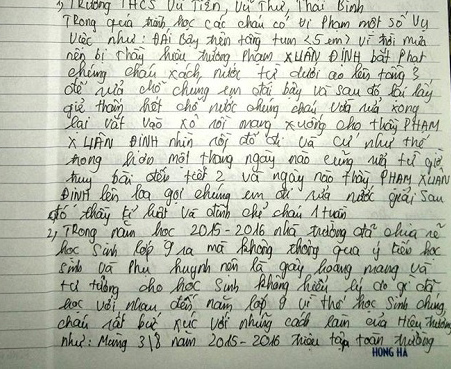 1, Trường THCS Vũ Tiến, Vũ Thư, Thái Bình
Trong quá trình học các cháu có vi phạm một số vụ
việc như: Đái bậy trên tầng tum (<5 em) vì trời mưa
nên bị thầy hiệu trưởng: Phạm XUÂN ĐÍNH bắt phạt
chúng cháu xách nước từ dưới ao lên tầng 3
để rửa chỗ chúng em đái bậy và sau đó lại lấy
giẻ thấm hết chỗ nước chúng cháu vừa rửa xong
lại vắt vào xô rồi mang xuống cho thầy PHẠM
XUÂN ĐÍNH nhìn rồi đổ đi và cứ như thế
trong hơn một tháng ngày nào cũng rửa từ giờ
truy bài đến tiết 2 và ngày nào thầy PHẠM XUÂN
ĐÍNH lên loa gọi chúng em đi rửa nước giải sau
đó thầy kỉ luật và đình chỉ cháu 1 tuần
2, Trong năm học 2015-2016 nhà trường đã chia rẽ
học sinh lớp 9 ra mà không thông qua ý kiến học
sinh và phụ huynh nên là gây hoang mang và
tư tưởng cho học sinh không hiểu lý do gì đã
học với nhau đến năm lớp 9 vì thế học sinh chúng
cháu rất bức xúc với những cách làm của Hiệu trưởng
như: Mùng 3/8 năm 2015-2016 triệu tập toàn trường
HỒNG HÀ